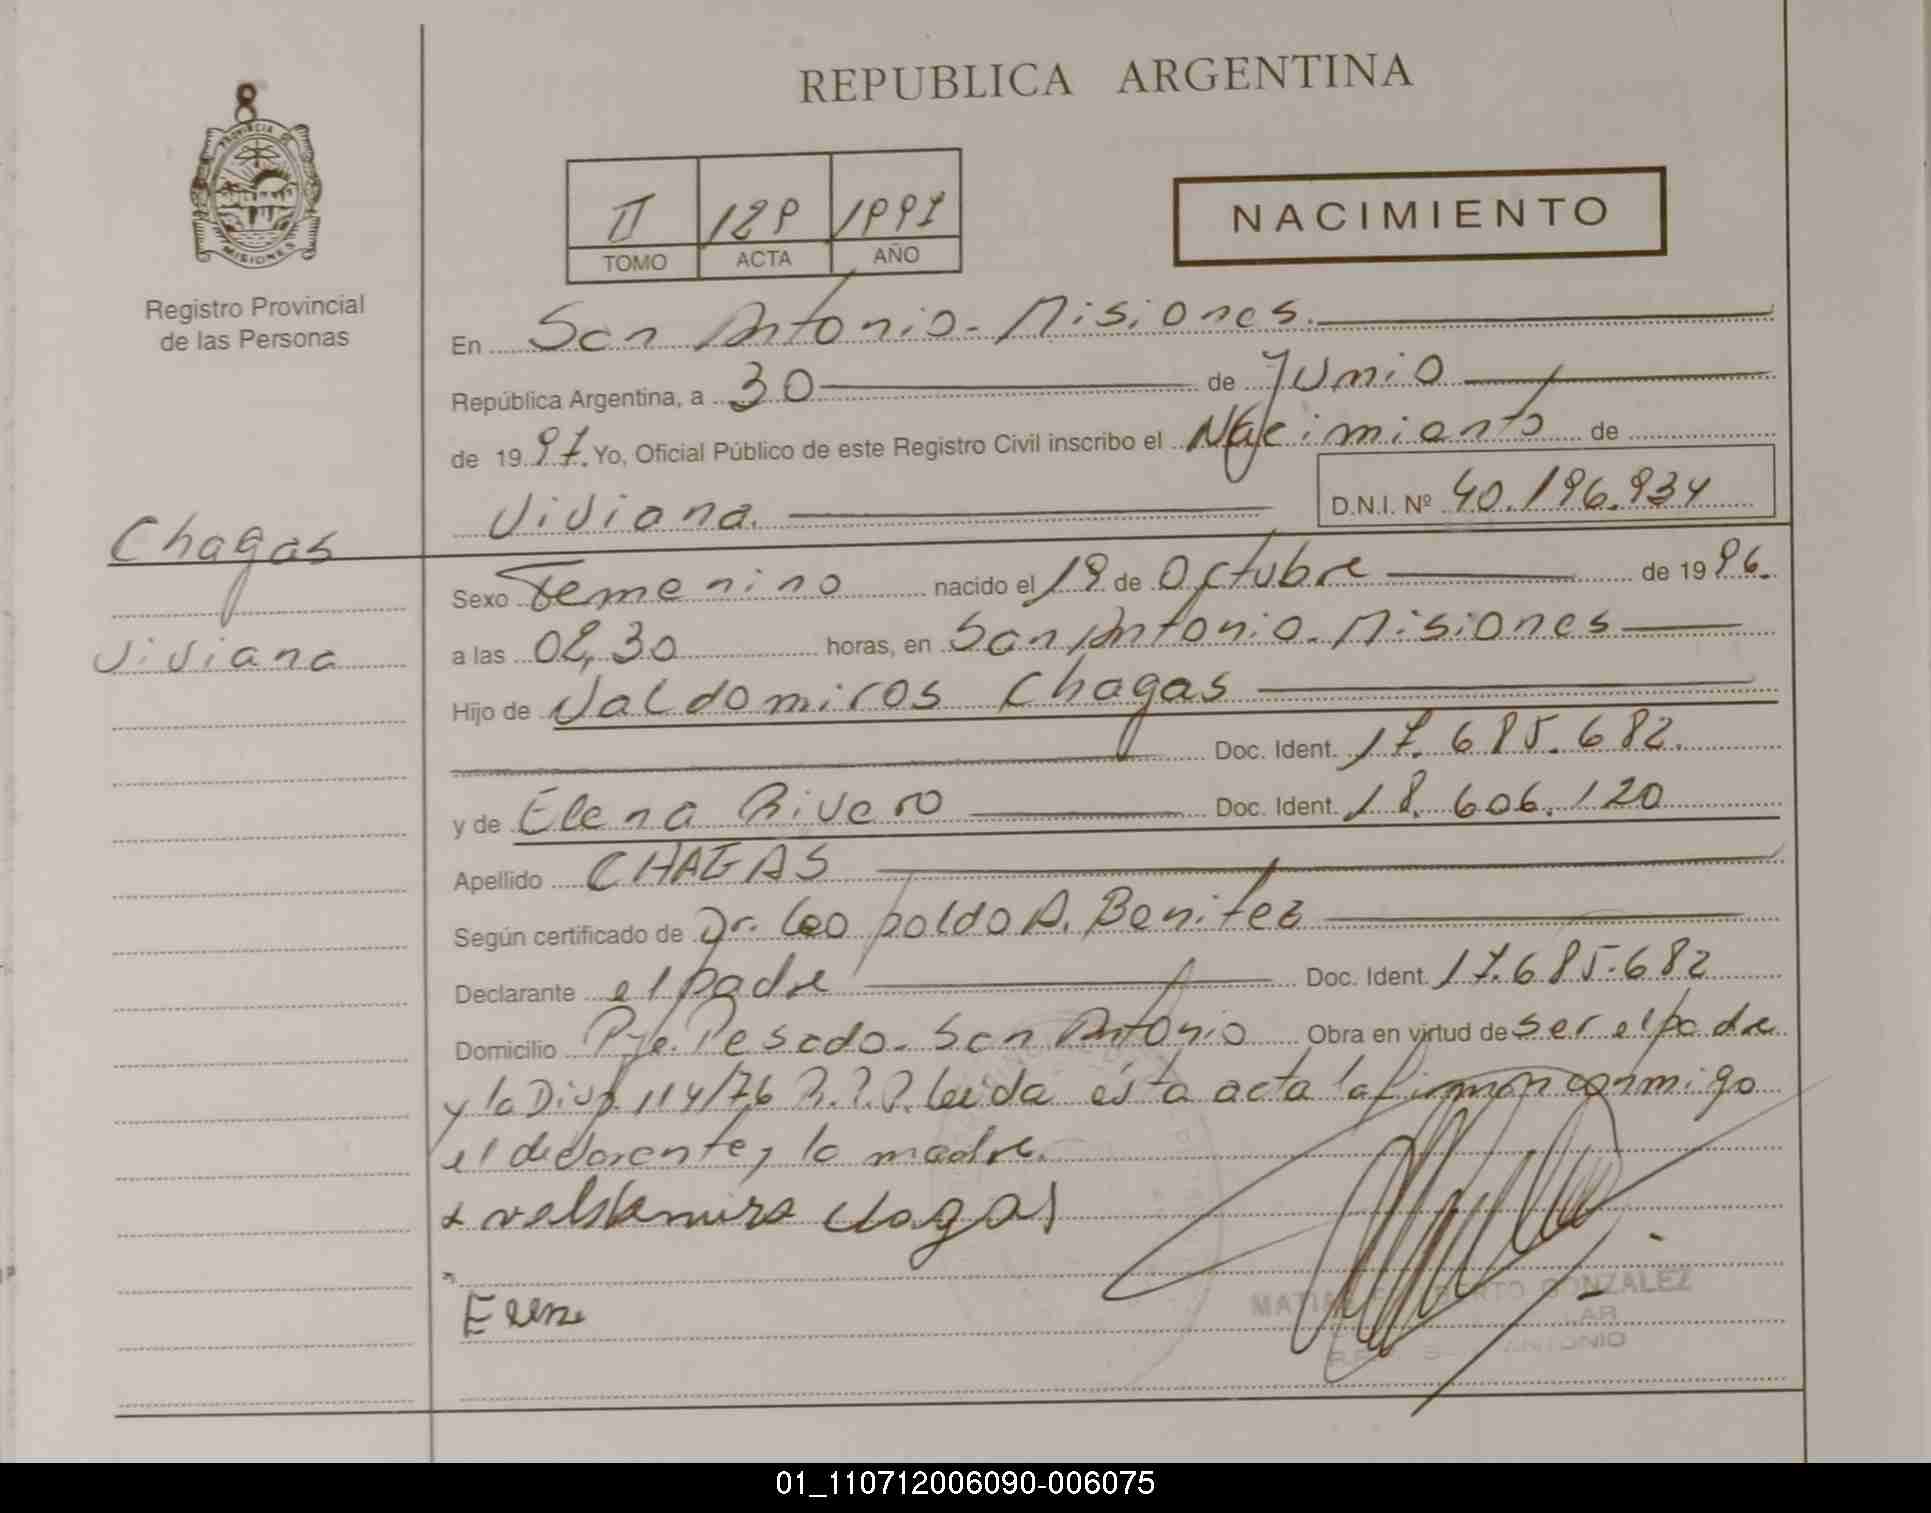 8
PROVINCIA DE
MISIONES
Registro Provincial
de las Personas
REPUBLICA ARGENTINA
II 129 1997
TOMO ACTA AÑO
NACIMIENTO
En San Antonio - Misiones.
República Argentina, a 30 de Junio
de 1997. Yo, Oficial Público de este Registro Civil inscribo el Nacimiento de
Viviana. D.N.I. Nº 40.196.934
Chagas
Viviana
Sexo Femenino nacido el 19 de Octubre de 1996.
a las 02,30 horas, en San Antonio. Misiones
Hijo de Valdomiros Chagas
Doc. Ident. 17.685.682.
y de Elena Rivero Doc. Ident. 18.606.120
Apellido CHAGAS
Según certificado de Dr. Leopoldo A. Benitez
Declarante el padre Doc. Ident. 17.685.682
Domicilio Pje. Pesado - San Antonio Obra en virtud de ser el padre
y la Disp. 114/76 R.P.P. leida ésta acta la firman conmigo
el declarante, la madre.
Elena
GONZALEZ
01_110712006090-006075